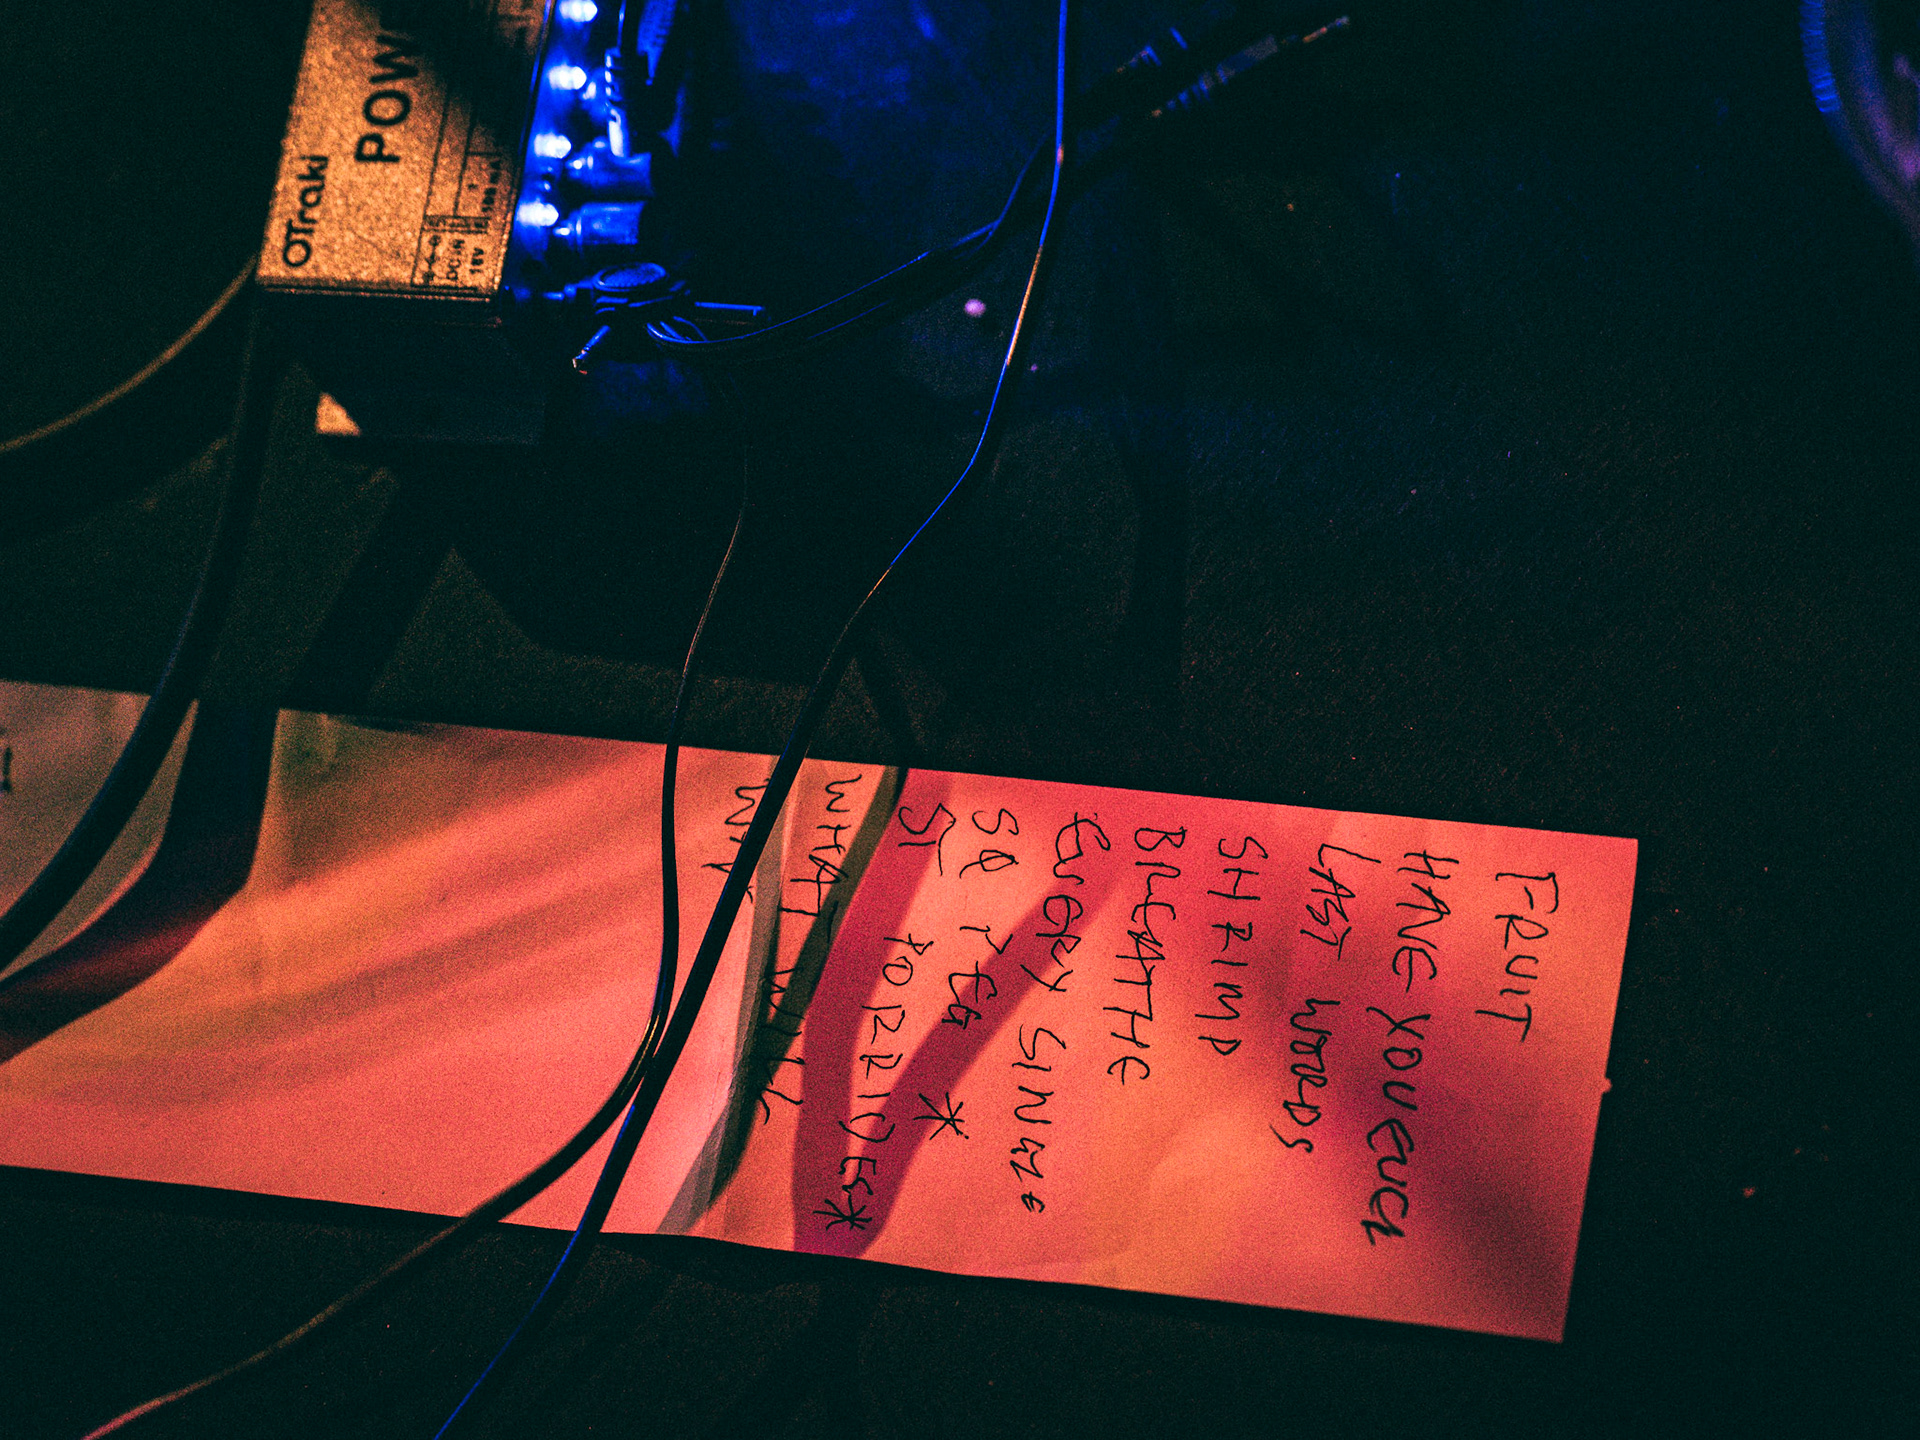 OTraki
POW
DC IN
18V
FRUIT
HANG YOUEUCH
LAST WORDS
SHRIMP
BREATHE
EVERY SINGLE
SQ REG *
PORRIDGE *
WHAT WILL